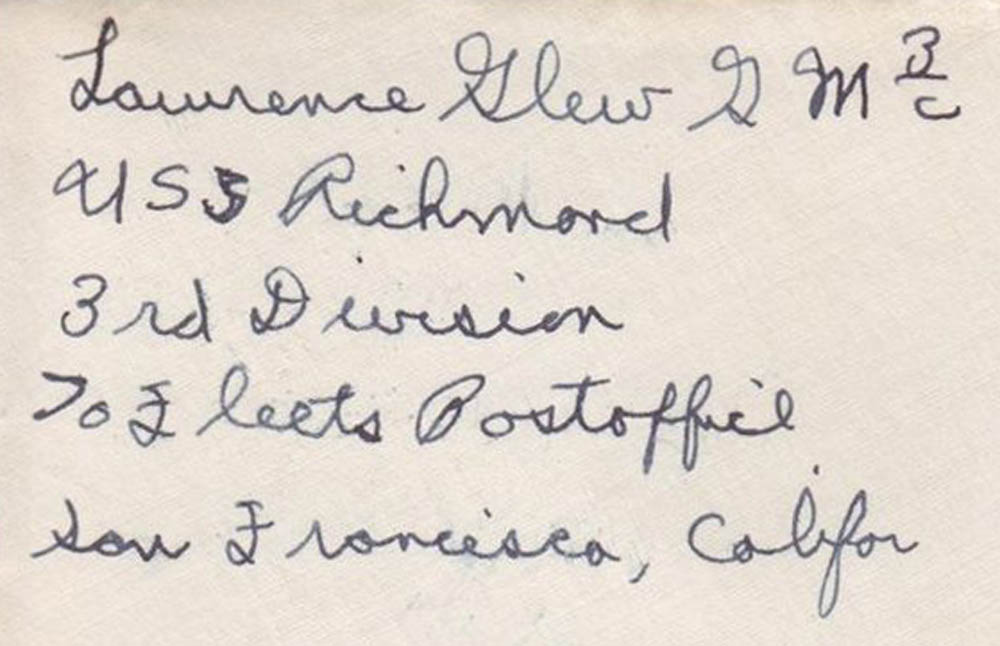 Lawrence Glew G M 3/c
USS Richmond
3rd Division
% Fleets Postoffice
San Francisco, Califor